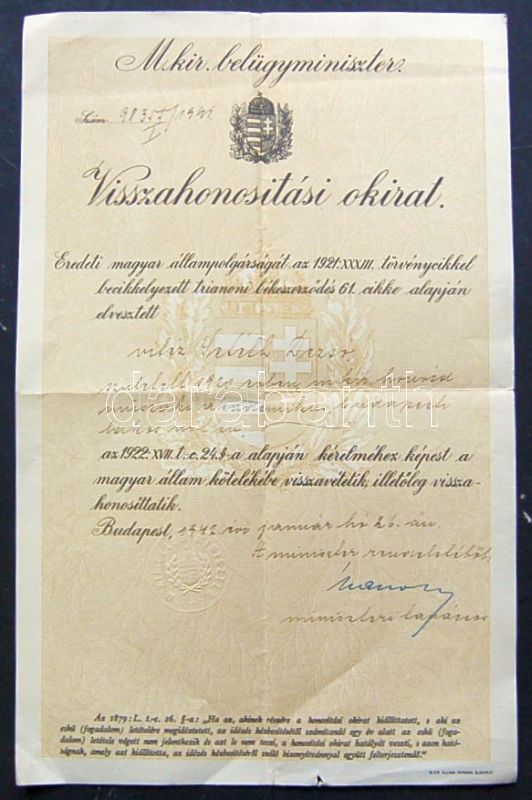 M. kir. belügyminiszter.
Szám:
Visszahonositási okirat.
Eredeti magyar állampolgárságát az 1921:XXXIII. törvénycikkel
becikkelyezett trianoni békeszerződés 61. cikke alapján
elvesztett
vitéz Dezső,
született
budapesti
az 1922:XVII. t.-c. 24.§-a alapján kérelméhez képest a
magyar állam kötelékébe visszavétetik, illetőleg vissza-
honosíttatik.
Budapest, 1942 évi január hó 26.-án.
A miniszter rendeletéből:
miniszteri tanácsos
Az 1879: L. t.-c. 16. §-a: „Ha az, akinek részére a honosítási okirat kiállíttatott, s aki az
eskü (fogadalom) letételére megidéztetett, az idézés kézbesítésétől számítandó egy év alatt az eskü (foga-
dalom) letétele végett nem jelentkezik és azt le nem teszi, a honosítási okirat hatályát veszti, s azon ható-
ságnak, amely azt kiállította, az idézés kézbesítéséről szóló bizonyítvánnyal együtt felterjesztendő.”
M. KIR. ÁLLAMI NYOMDA. BUDAPEST.
darabanth